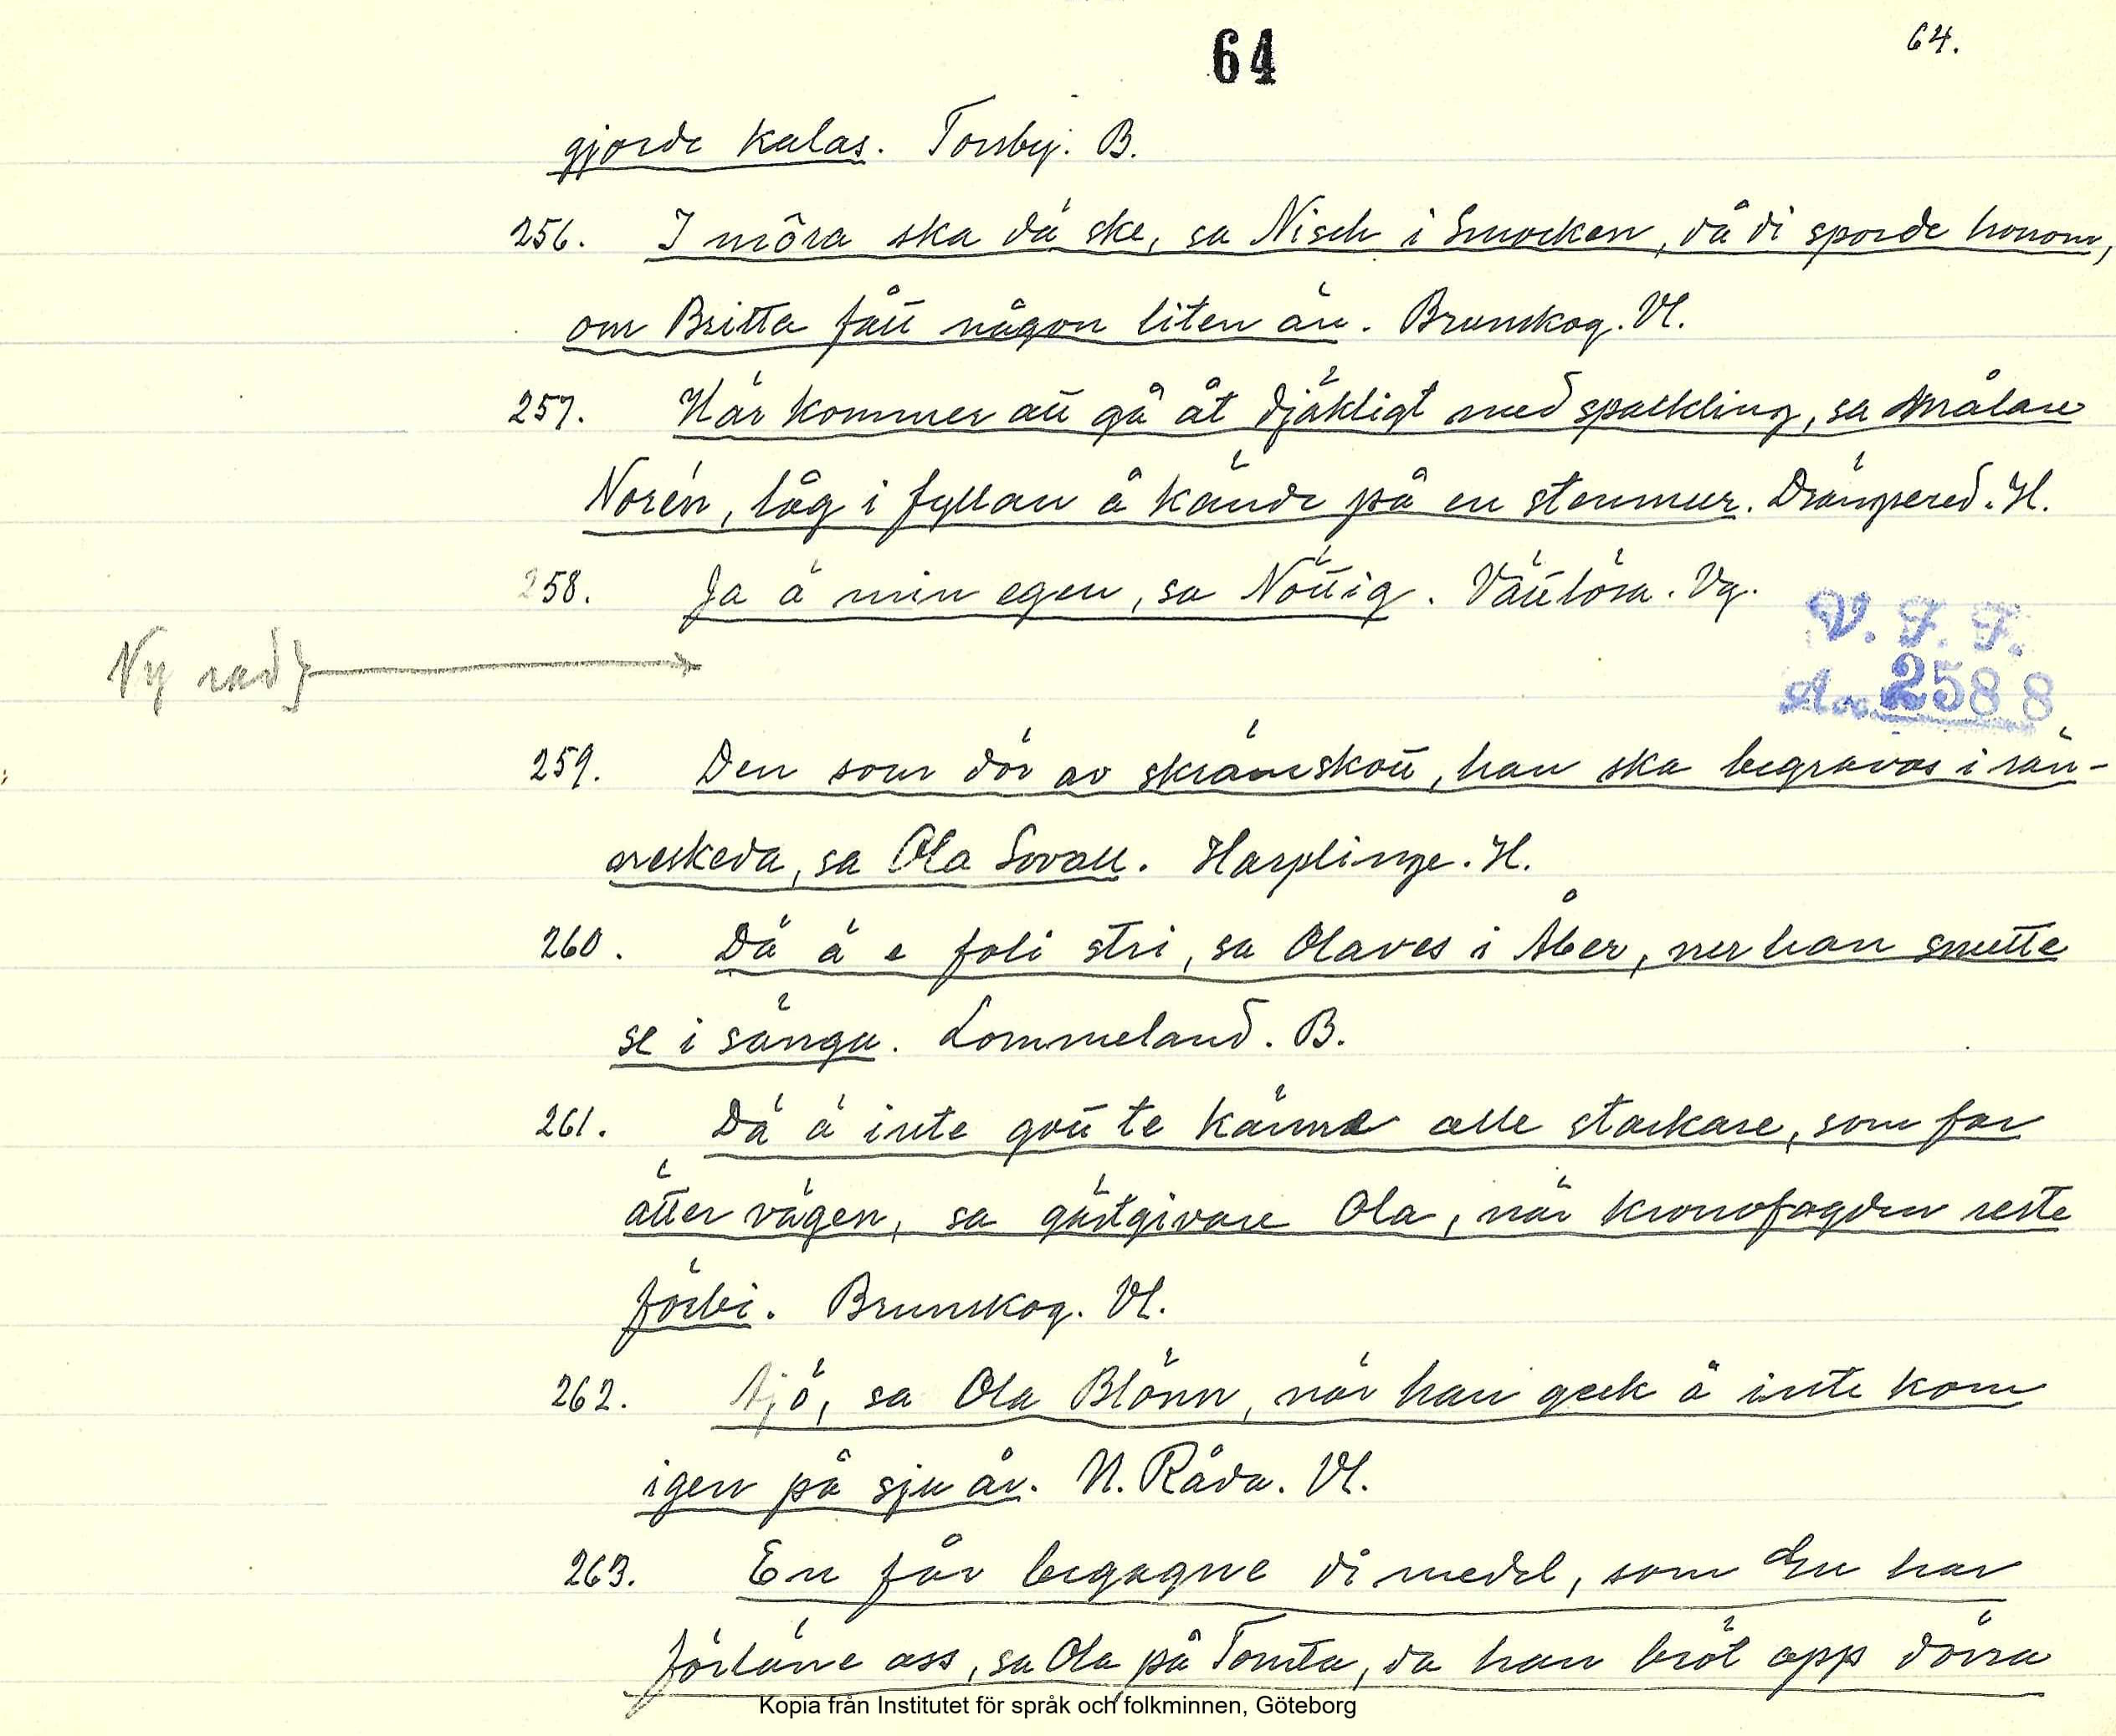 64
64.
gjorde kalas. Torsby. B.
256. I môra ska dä ske, sa Nisch i Smocken, då di sporde honom,
om Britta fått någon liten än. Brunskog. Vl.
257. Här kommer att gå åt djäkligt med spackling, sa målare
Norén, låg i fyllan å kände på en stenmur. Drängsered. H.
258. Ja ä min egen, sa Nöttig. Vättlösa. Vg.
Ny rad
V. F. F.
Acc. 2588
259. Den som dör av skrämskott, han ska begravas i rän-
neskeda, sa Ola Sovall. Harplinge. H.
260. Dä ä e foli stri, sa Olaves i Åber, ner han smette
se i sänga. Lommeland. B.
261. Dä ä inte gott te känne alle stackare, som far
ätter vägen, sa gästgivare Ola, när kronofogden reste
förbi. Brunskog. Vl.
262. Ajö, sa Ola Blönn, när han geck å inte kom
igen på sju år. N. Råda. Vl.
263. En får begagne di medel, som Gu har
förläne oss, sa Ola på Tomta, da han bröt opp dörra
Kopia från Institutet för språk och folkminnen, Göteborg